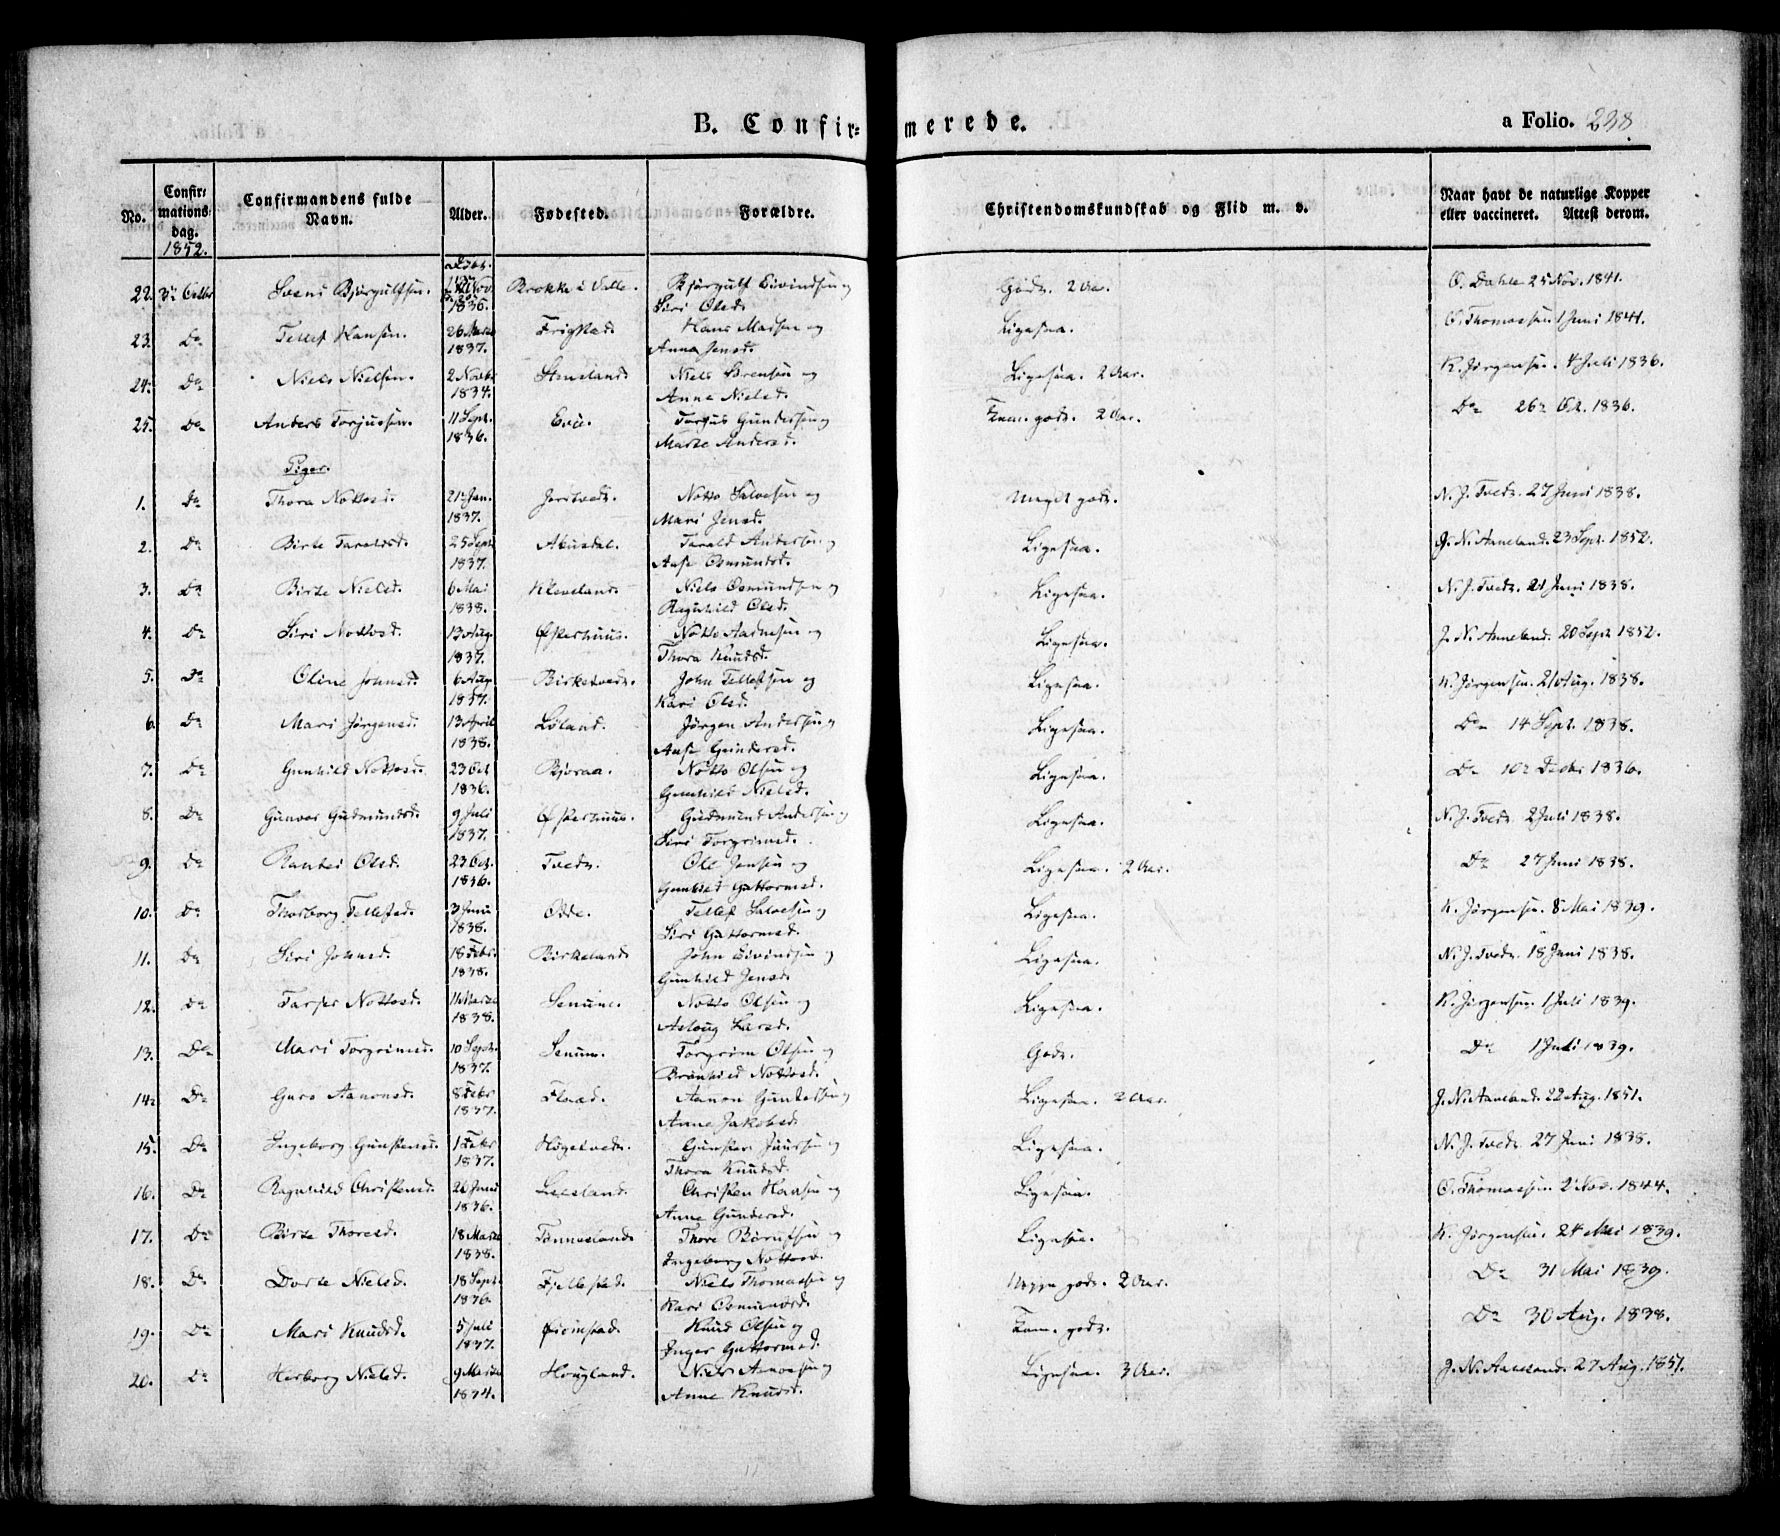 B. Confir=merede.
a Folio. 238
No.
Confir=mations dag. 1852.
Confirmandens fulde Navn.
Alder.
Fødested.
Forældre.
Christendomskundskab og Flid m. v.
Naar havt de naturlige Kopper eller vaccineret. Attest derom.
22. 3die Octbr Svend Bjørgulfsen. 1836. Brokke i Valle. Bjørgulf Eivindsen og Godt. 2 Aar. O. Dahle 25 Nov. 1841.
Siri Olsd.
23. Do Tellef Hansen. 26 Marts 1837. Frigstad Hans Madsen og Ligesaa. O. Thomassen 1 Juni 1841.
Anna Jensd.
24. Do Niels Nielsen. 2 Novbr 1834. Steneland Niels Sørensen og Ligesaa. 2 Aar. K. Jørgensen. 4 Juli 1836.
Anne Nielsd.
25. Do Anders Torjussen. 11 Sept. 1836. Evje. Torjus Gundersen og Tem. godt. 2 Aar. Do 26 Oct. 1836.
Marte Andersd.
Piger.
1. Do Thora Nottosd. 21 Jan. 1837. Jortveds. Notto Salvesen og Meget godt. N. J. Tvedt. 27 Juni 1838.
Mari Jensd.
2. Do Birte Taraldsd. 25 Sept 1837. Abusdal. Tarald Andersen og Ligesaa. J. N. Aaneland. 23 Sept. 1852.
Aase Osmundsd.
3. Do Birte Nielsd. 6 Mai 1838. Kleveland. Niels Osmundsen og Ligesaa. N. J. Tvedt. 21 Juni 1838.
Ragnhild Olsd.
4. Do Siri Nottosd. 13 Aug. 1837. Østerhuus. Notto Aadnesen og Ligesaa. J. N. Aaneland. 20 Sept 1852.
Thora Knudsd.
5. Do Oline Johnsd. 6 Aug. 1837. Birketvedt. John Tellefsen og Ligesaa. K. Jørgensen. 21 Aug. 1838.
Kari Olsd.
6. Do Mari Jørgensd. 13 April 1838. Løland. Jørgen Andersen og Ligesaa. Do 14 Sept. 1838.
Aase Gundersd.
7. Do Gunhild Nottosd. 23 Oct 1836. Bjoraa. Notto Olsen og Ligesaa. Do 10 Decbr 1836.
Gunhild Nielsd.
8. Do Gunvor Gudmundsd. 9 Juli 1837. Østerhuus. Gudmund Andersen og Ligesaa. N. J. Tvedt. 2 Juli 1838.
Siri Torgrimsd.
9. Do Rantei Olsd. 23 Oct. 1836. Tvedt. Ole Jensen og Ligesaa. 2 Aar. Do 27 Juni 1838.
Gunhild Guttormsd.
10. Do Thorborg Tellefsd. 3 Juni 1838. Odde. Tellef Salvesen og Ligesaa. K. Jørgensen. 8 Mai 1839.
Siri Guttormsd.
11. Do Siri Johnsd. 18 Febr. 1838. Birkeland John Eivindsen og Ligesaa. N. J. Tvedt. 18 Juni 1838.
Gunhild Jensd.
12. Do Tarjer Nottosd. 1838. Senum. Notto Olsen og Ligesaa. K. Jørgensen 1 Juli 1839.
Asloug Larsd.
13. Do Mari Torgrimsd. 10 Sept. 1837. Senum. Torgrim Olsen og Godt. Do 1 Juli 1839.
Brønhild Nottosd.
14. Do Guro Aanonsd. 8 Febr 1837. Flaad. Aanon Gundersen og Ligesaa. 2 Aar. J. N. Aaneland. 22 Aug. 1851.
Anne Jakobsd.
15. Do Ingeborg Gunstensd. 1 Febr 1837. Høgetvedt. Gunsten Juursen og Ligesaa. N. J. Tvedt 27 Juni 1838.
Thora Knudsd.
16. Do Ragnhild Christensd. 26 Juni 1836. Christen Hansen og Ligesaa. O. Thomassen. 2 Nov. 1844.
Anne Gundersd.
17. Do Birte Thoresd. 18 Marts 1838. Tønnesland Thore Børufsen og Ligesaa. K. Jørgensen. 24 Mai 1839.
Ingeborg Nottosd.
18. Do Dorte Nielsd. 18 Sept. 1836. Fjellestad. Niels Thomassen og Neppe godt. 2 Aar. Do 31 Mai 1839.
Kari Osmundsd.
19. Do Mari Knudsd. 5 Juli 1837. Knud Olsen og Tem. godt. Do 30 Aug. 1838.
Inger Guttormsd.
20. Do Herborg Nielsd. 9 Marts 1834. Hougland. Niels Aanonsen og Ligesaa. 3 Aar. J. N. Aaneland. 27 Aug. 1851.
Anne Knudsd.